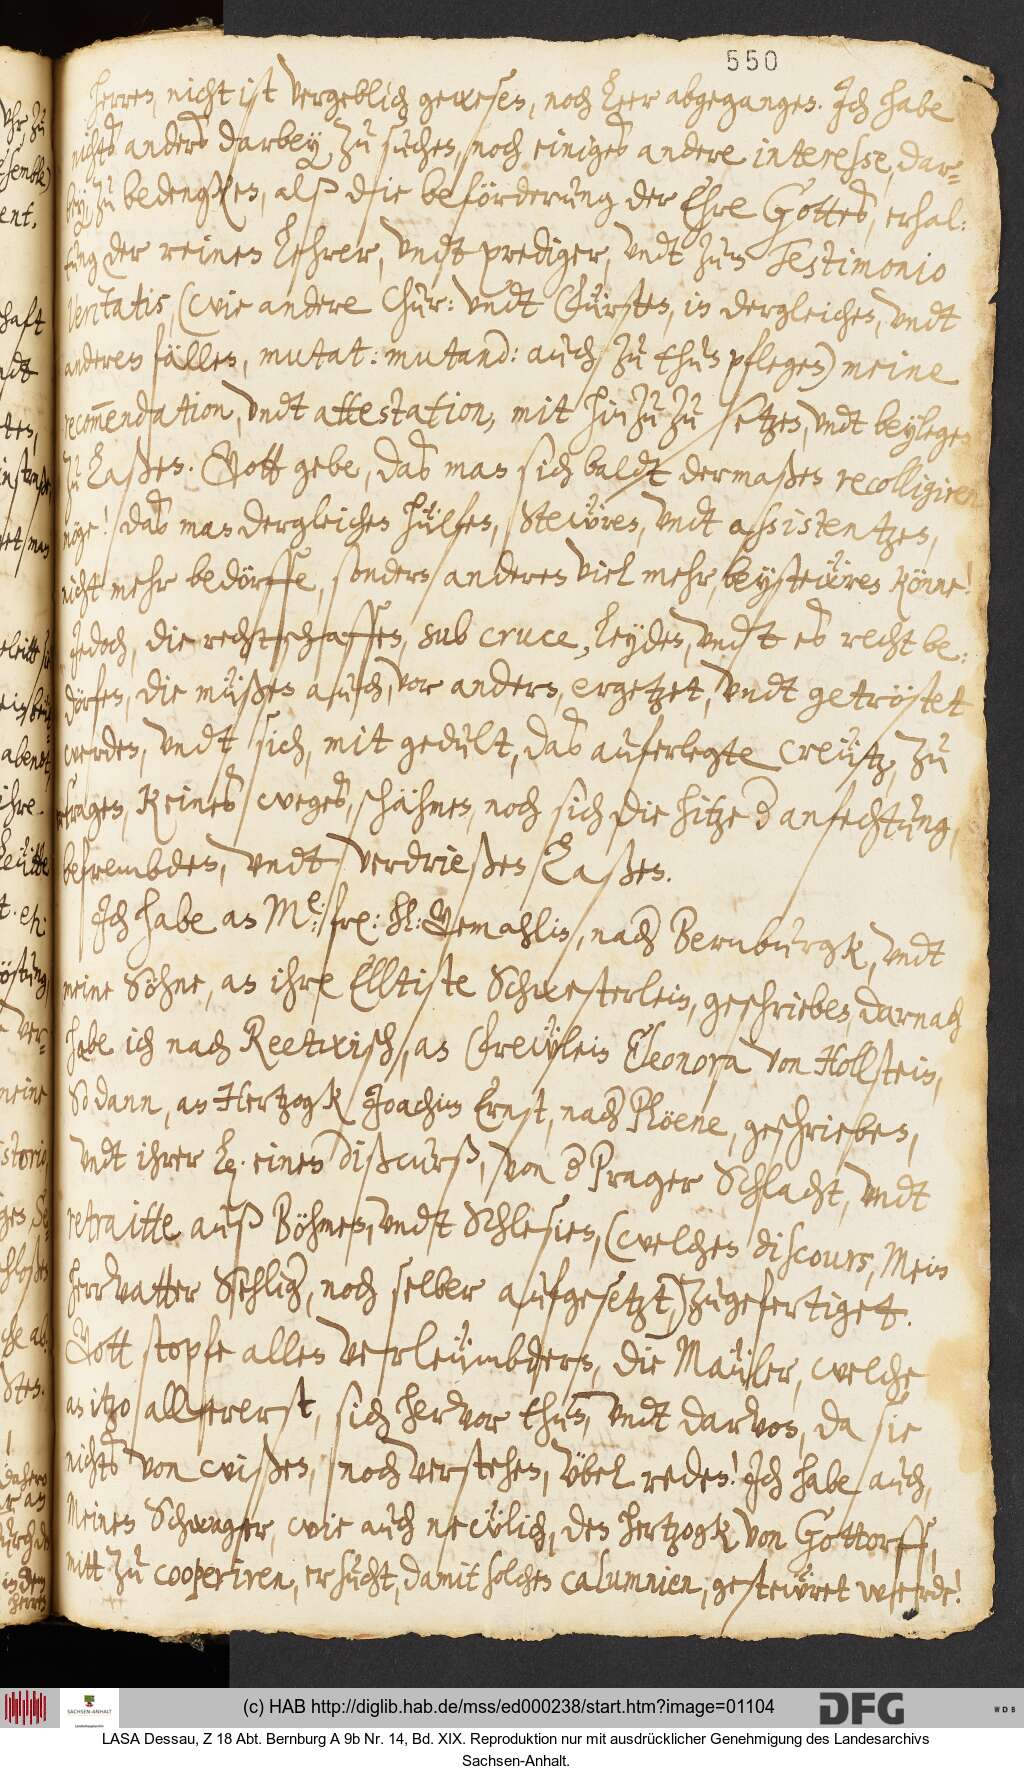 550
herren, nicht ist vergeblich gewesen, noch Leer abgegangen. Ich habe
nichts anders darbey zu suchen, noch einiges andere interesse, dar=
bey, zu bedengken, alß die beförderung der Ehre Gottes, erhal:
tung der reinen Lehrer, undt prediger, undt zum Testimonio
Veritatis, (wie andere Chur: undt Fürsten, in dergleichen, undt
anderen fällen, mutat: mutand: auch zu thun pflegen) meine
recom̅endation, undt attestation, mit hin zu zu setzen, undt beylegen
zu Laßen. Gott gebe, das man sich baldt dermaßen recolligiren
möge! das man dergleichen hülfen, Stewren, undt assistentzen,
nicht mehr bedörffe, sondern anderen viel mehr, beystewren könne!
Jedoch, die rechtschaffen, sub cruce, Leyden, undt es recht be:
dörfen, die müßen auch, vor andern, ergetzet, undt getröstet
werden, undt sich, mit gedult, das auferlegte Creutz, zu
ertragen, keines weges, schähmen, noch sich die hitze d anfechtung,
befrembden, undt verdrießen Laßen.
Ich habe an Me: frl: hl: Gemahlin, nach Bernburgk, undt
meine Söhne, an ihre Elltiste Schwesterlein, geschrieben, darnach
habe ich nach Reetwisch, an Frewlein Eleonora von Hollstein,
So dann, an Hertzogk Joachim Ernst, nach Plöene, geschrieben,
undt ihrer L. einen Dißcurß, von d Prager Schlacht, undt
retraitte auß Böhmen, undt Schlesien, (welchen discours, Mein
herrvatter Sehlig, noch selber aufgesetzt,) zugefertiget.
Gott stopfe allen verleümbdern, die Mäuler, welche
an itzo allererst, sich hervor thun, undt darvon, da sie
nichts von wißen, noch verstehen, übel reden! Ich habe auch,
Meinen Schwager, wie auch newlich, den hertzogk von Gottorff,
mitt zu cooperiren, ersucht, damit solchen calumnien, gestewret werde!
(c) HAB http://diglib.hab.de/mss/ed000238/start.htm?image=01104
SACHSEN-ANHALT
DFG
WDB
LASA Dessau, Z 18 Abt. Bernburg A 9b Nr. 14, Bd. XIX. Reproduktion nur mit ausdrücklicher Genehmigung des Landesarchivs
Sachsen-Anhalt.